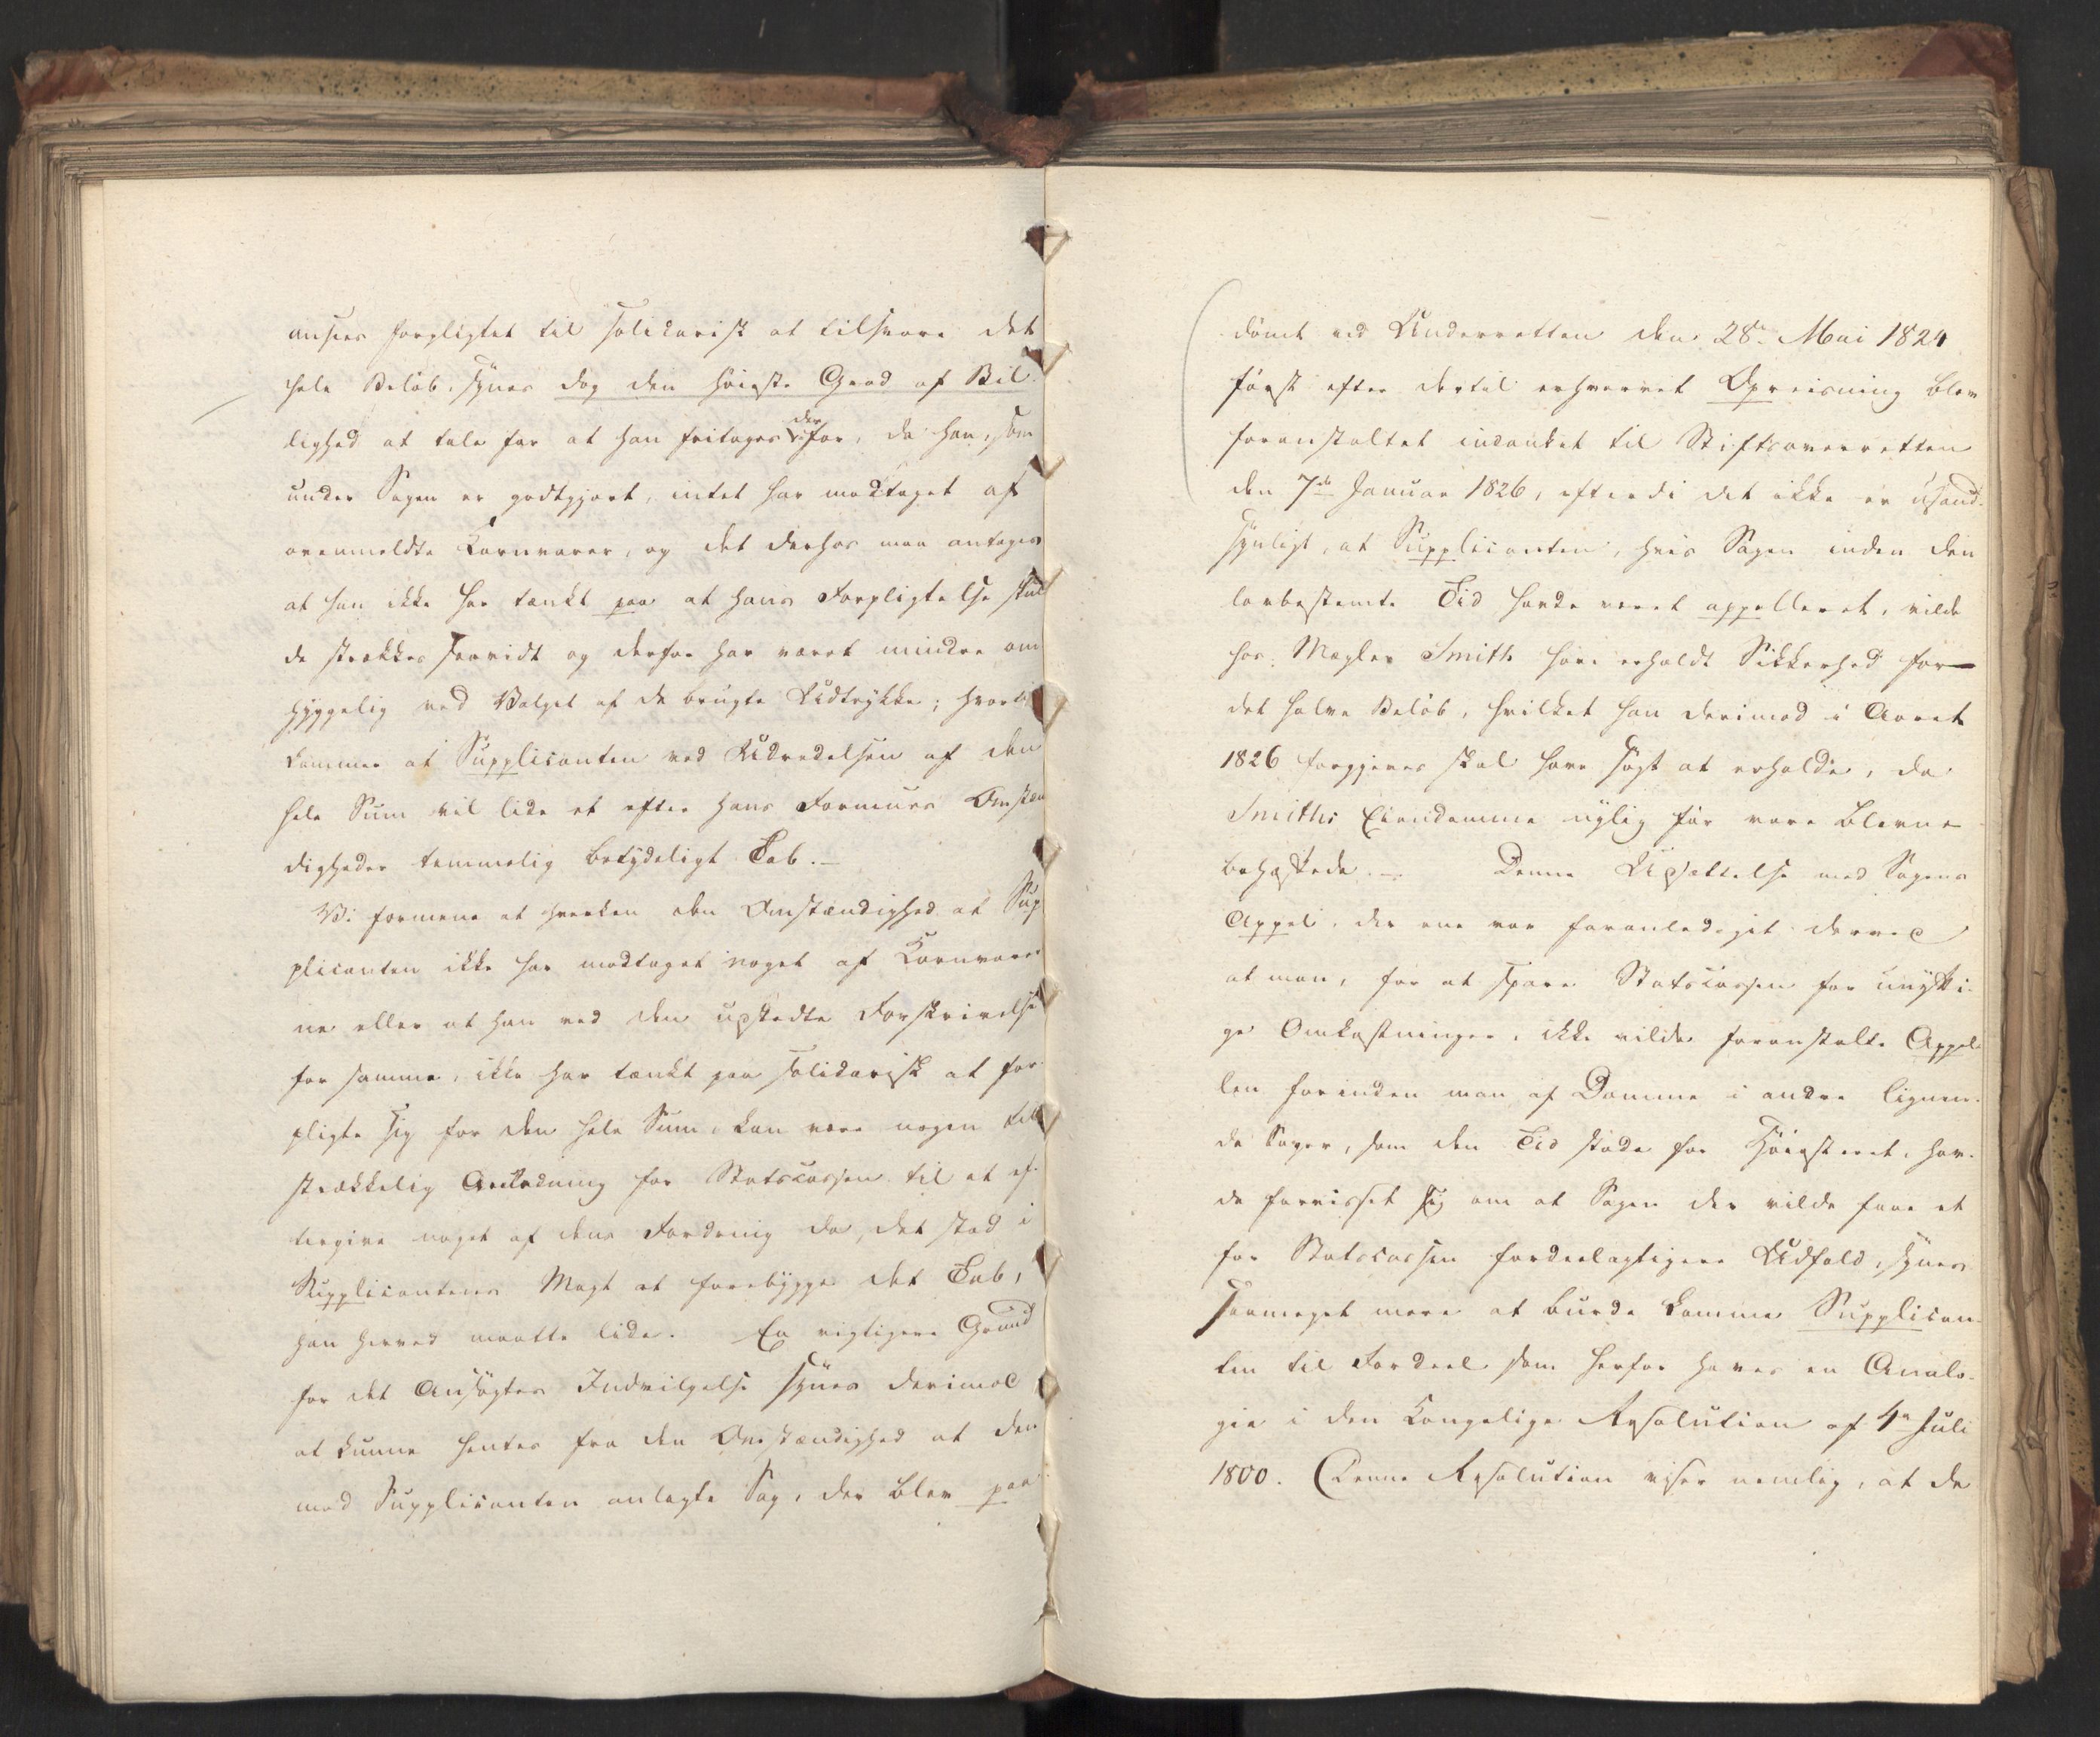 ansees forpligtet til solidarisk at tilsvare det
hele Beløb, synes dog den høieste Grad af Bil-
lighed at tale for at han fritages derfor, da han, som
under Sagen er godtgjort, intet har modtaget af
ovenmeldte Kornvarer, og det derhos maa antages
at han ikke har tænkt paa at hans Forpligtelse skul
de strækkes saavidt og derfor har været mindre om
hyggelig ved Valget af de brugte Udtrykke; hvortil
kommer at Supplicanten ved Udredelsen af den
hele Sum vil lide et efter hans Formues Omstæn
digheder temmelig betydeligt Tab.—
Vi formene at hverken den Omstændighed at Sup
plicanten ikke har modtaget noget af Kornvarer
ne eller at han ved den udstedte Forskrivelse
for samme, ikke har tænkt paa solidarisk at for
pligte sig for den hele Sum, kan være nogen til
strækkelig Anledning for Statscassen til at ef-
tergive noget af dens Fordring da, det stod i
Supplicantens Magt at forebygge det Tab,
han herved maatte lide. En vigtigere Grund
for det Ansøgtes Indvilgelse synes derimod
at kunne hentes fra den Omstændighed at den
mod Supplicanten anlagte Sag, der blev paa
dömt ved Underretten den 28de Mai 1824
først efter dertil erhvervet Opreisning blev
foranstaltet indanket til Stiftsoverretten
den 7de Januar 1826, efterdi det ikke er usand-
synligt, at Supplicanten, hvis Sagen inden den
lovbestemte Tid havde været appelleret, vilde
hos Mægler Smith have erholdt Sikkerhed for
det halve Beløb, hvilket han derimod i Aaret
1826 forgjeves skal have søgt at erholde, da
Smiths Eiendomme nylig før vare blevne
behæftede.— Denne Udsættelse med Sagens
Appel, der ene var foranlediget derved
at man, for at spare Statscassen for unytti-
ge Omkostninger, ikke vilde foranstalte Appel-
len forinden man af Domme i andre lignen-
de Sager, som den Tid stode for Høiesteret, hav-
de forvisset sig om at Sagen der vilde faae et
for Statscassen fordeelagtigere Udfald, synes
saameget mere at burde komme Supplican-
ten til Fordeel som herfor haves en Analo-
gie i den Kongelige Resolution af 4de Juli
1800. (Denne Resolution viser nemlig, at da